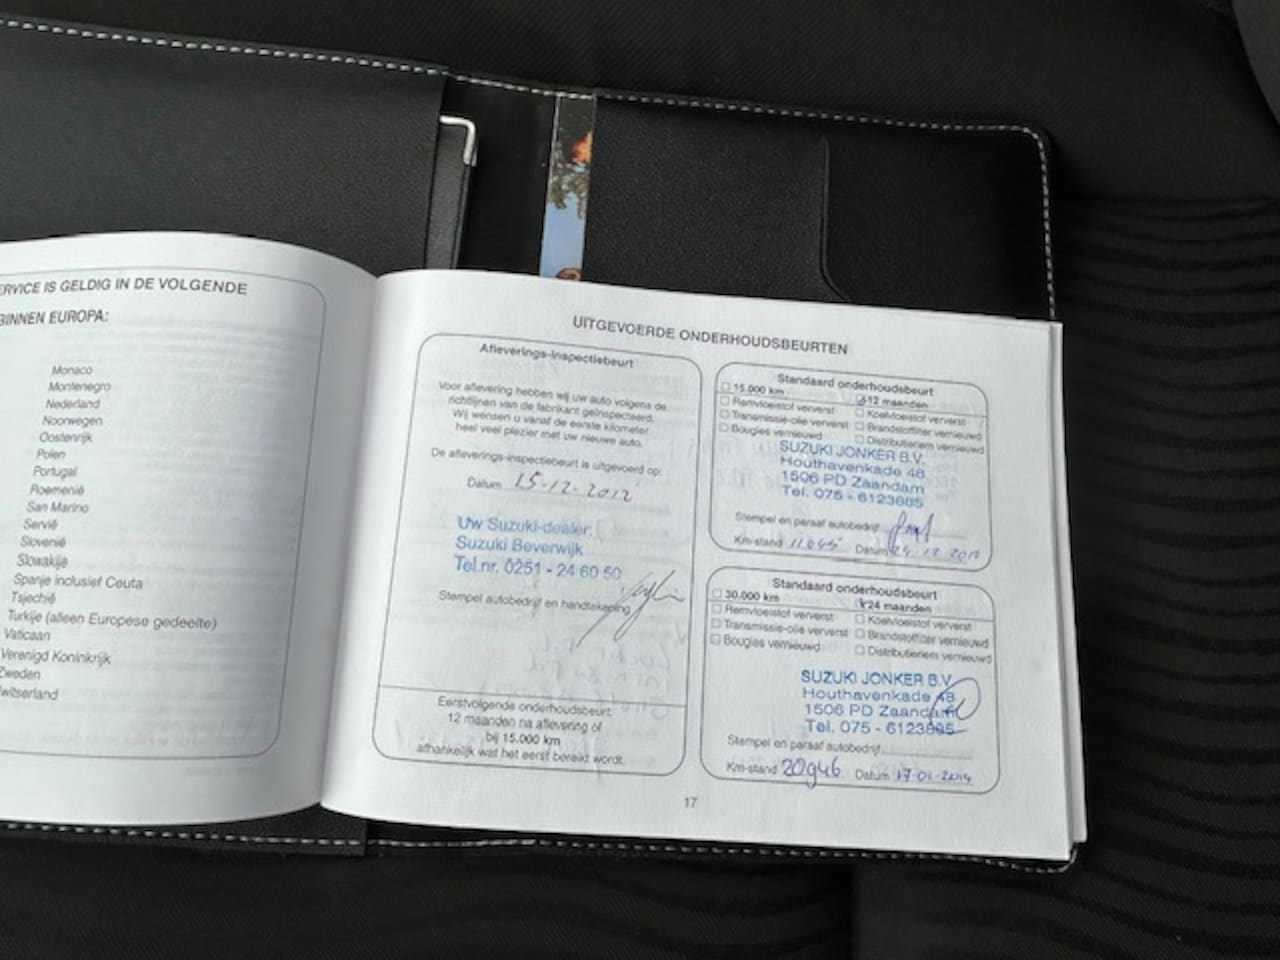 ERVICE IS GELDIG IN DE VOLGENDE
BINNEN EUROPA:
Monaco
Montenegro
Nederland
Noorwegen
Oostenrijk
Polen
Portugal
Roemenië
San Marino
Servië
Slovenië
Slowakijë
Spanje inclusief Ceuta
Tsjechië
Turkije (alleen Europese gedeelte)
Vaticaan
Verenigd Koninkrijk
Zweden
witserland
UITGEVOERDE ONDERHOUDSBEURTEN
Afleverings-Inspectiebeurt
Voor aflevering hebben wij uw auto volgens de
richtlijnen van de fabrikant geïnspecteerd.
Wij wensen u vanaf de eerste kilometer
heel veel plezier met uw nieuwe auto.
De afleverings-inspectiebeurt is uitgevoerd op:
Datum 15-12-2012
Uw Suzuki-dealer:
Suzuki Beverwijk
Tel.nr. 0251 - 24 60 50
Stempel autobedrijf en handtekening
Eerstvolgende onderhoudsbeurt:
12 maanden na aflevering of
bij 15.000 km
afhankelijk wat het eerst bereikt wordt.
Standaard onderhoudsbeurt
15.000 km 12 maanden
Remvloeistof ververst Koelvloeistof ververst
Transmissie-olie ververst Brandstoffilter vernieuwd
Bougies vernieuwd Distributieriem vernieuwd
SUZUKI JONKER B.V.
Houthavenkade 48
1506 PD Zaandam
Tel. 075 - 6123885
Stempel en paraaf autobedrijf
Km-stand Datum
Standaard onderhoudsbeurt
30.000 km 24 maanden
Remvloeistof ververst Koelvloeistof ververst
Transmissie-olie ververst Brandstoffilter vernieuwd
Bougies vernieuwd Distributieriem vernieuwd
SUZUKI JONKER B.V.
Houthavenkade 48
1506 PD Zaandam
Tel. 075 - 6123885
Stempel en paraaf autobedrijf
Km-stand 20946 Datum 17-01-2014
17